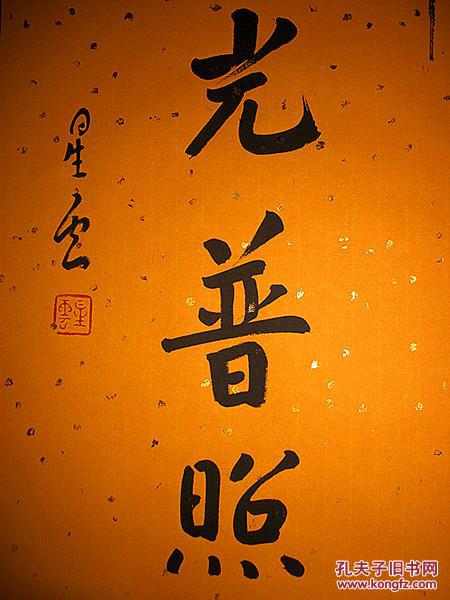 光普照
星雲
星雲
孔夫子旧书网
www.kongfz.com